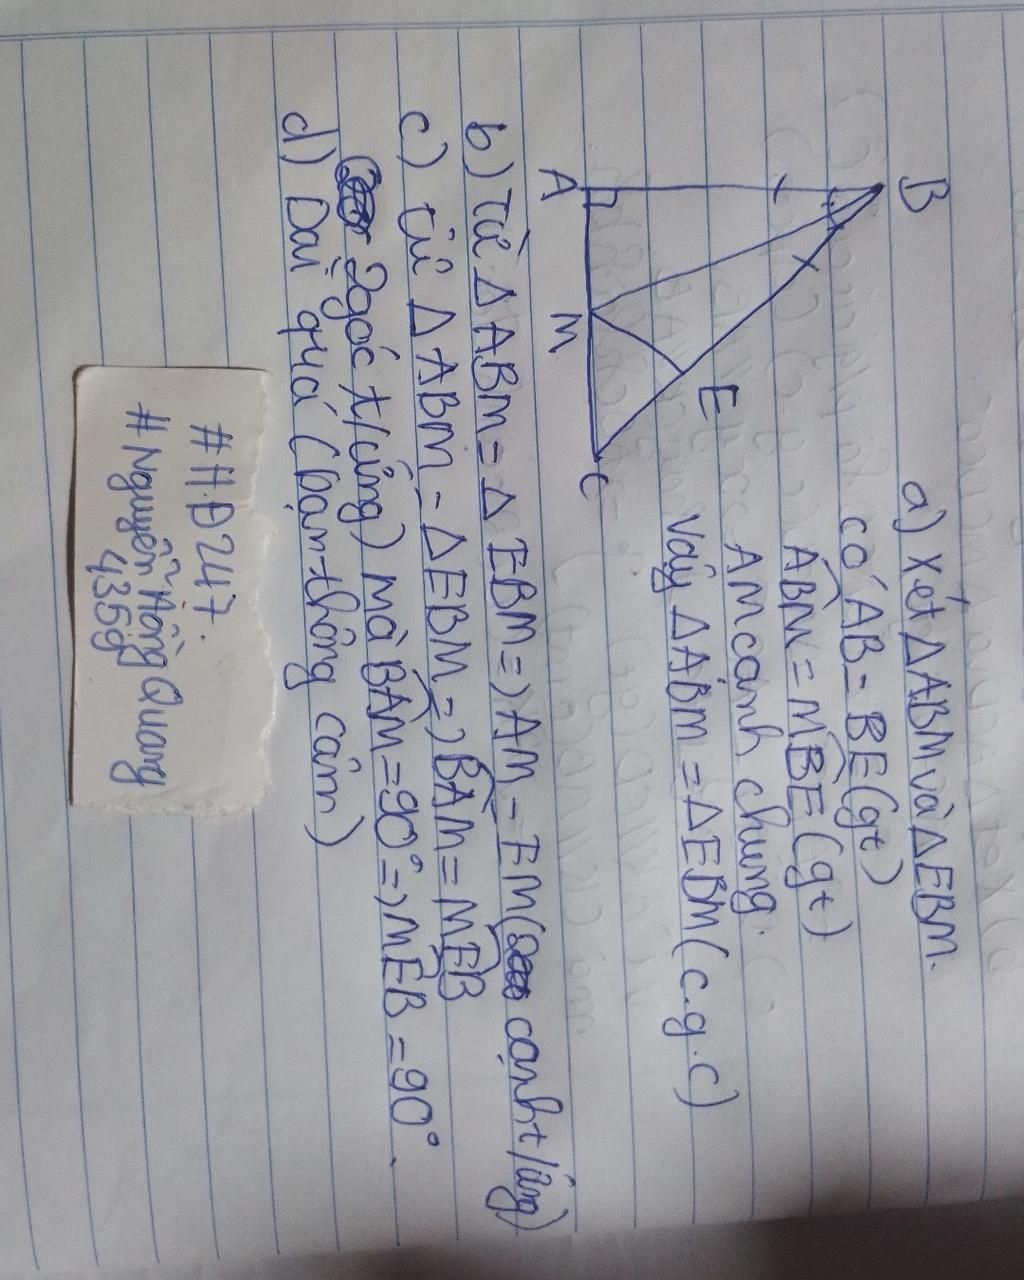 a) Xét ΔABM và ΔEBM.
có AB = BE (gt)
ABM = MBE (gt)
AM cạnh chung.
Vậy ΔABM = ΔEBM (c.g.c)
B
E
A
M
C
b) Từ ΔABM = ΔEBM => AM = EM ( cạnh t/ứng)
c) từ ΔABM = ΔEBM => BAM = MEB
2 góc t/ứng) mà BAM = 90° => MEB = 90°.
d) Dài quá (bạn thông cảm)
#HĐ247.
#Nguyễn Hồng Quang
4359